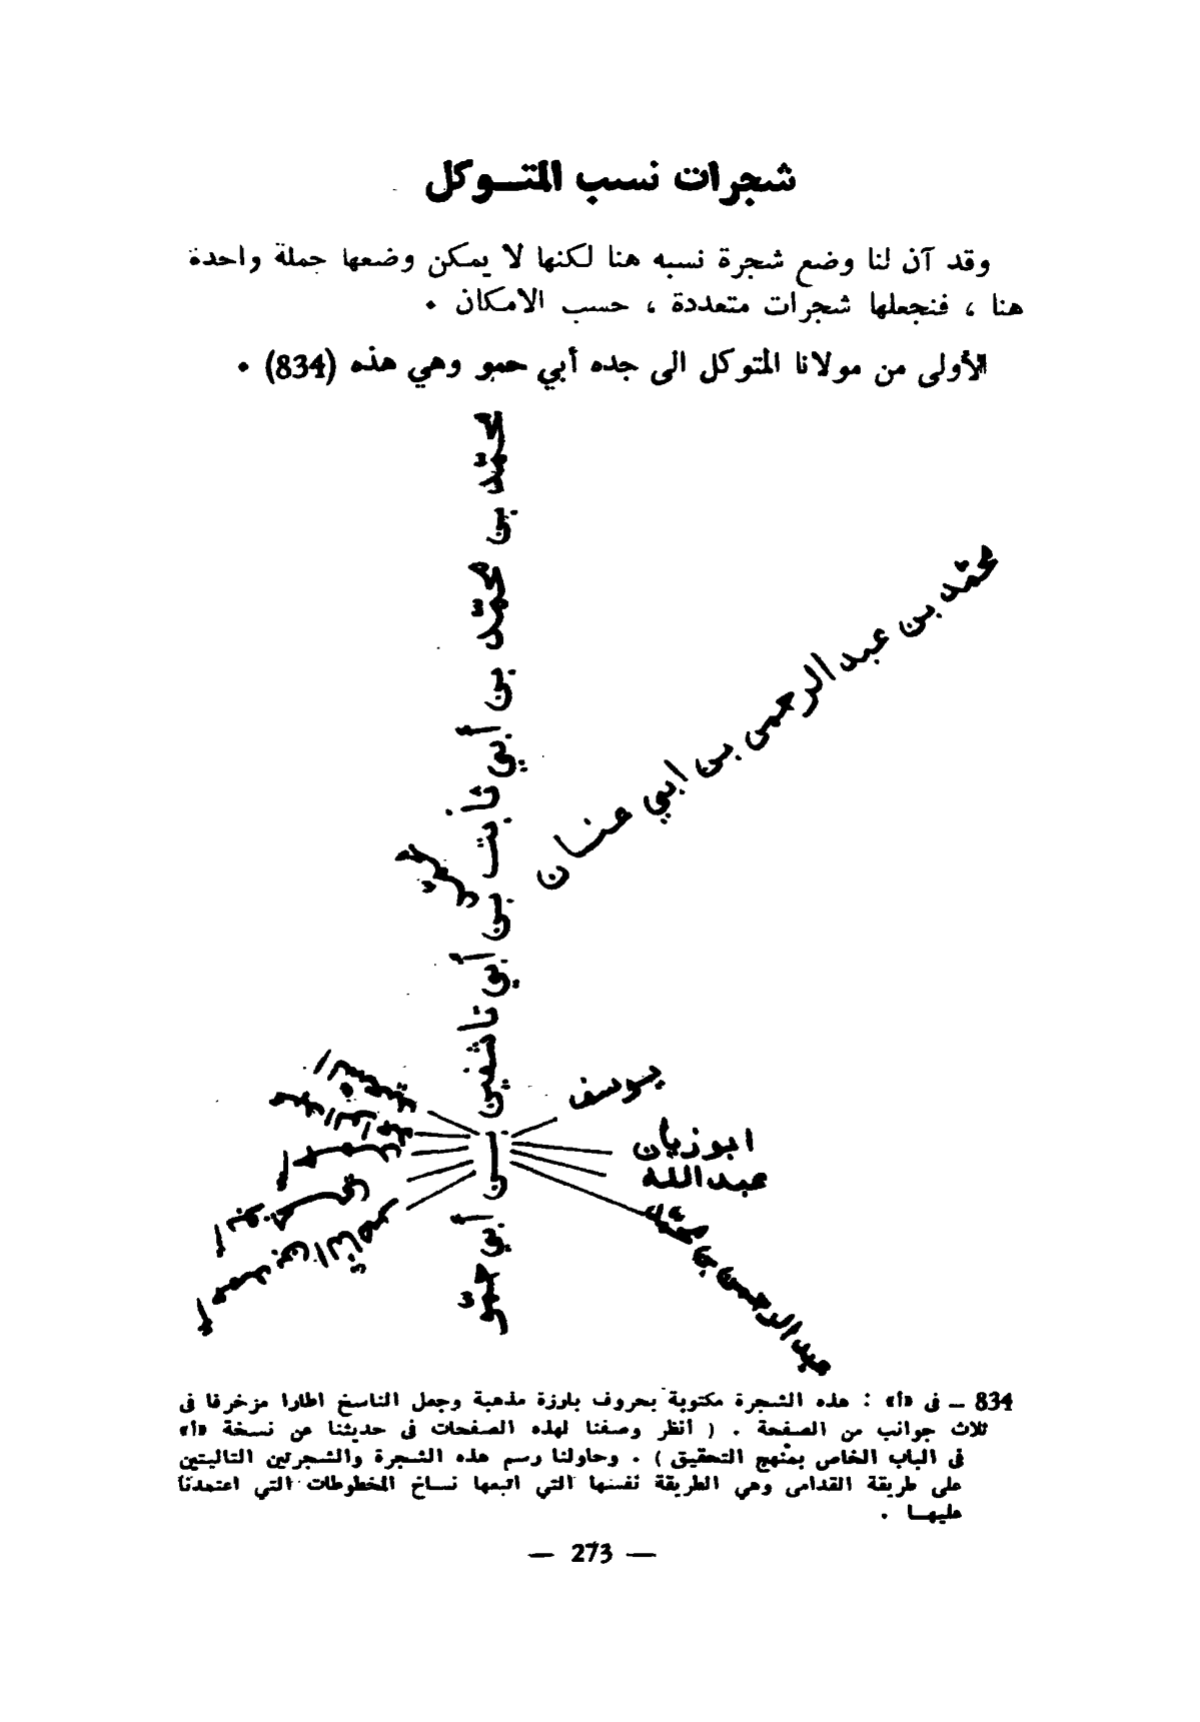 شجرات نسب المتـوكل
وقد آن لنا وضع شجرة نسبه هنا لكنها لا يمكن وضعها جملة واحدة
هنا ، فنجعلها شجرات متعددة ، حسب الامكان •
الأولى من مولانا المتوكل الى جده أبي حمو وهي هذه (834) •
محمّد بن محمّد بن أبي ثابت بن أبي تاشفين بـن أبي حمّو
محمّد بن عبد الرحمن بن ابي عنسان
يوسف
ابو زيان
عبد الله
عبد الرحمن بن محمّد
834 ــ فى «أ» : هذه الشجرة مكتوبة بحروف بارزة مذهبة وجعل الناسخ اطارا مزخرفا فى
ثلاث جوانب من الصفحة . ( أنظر وصفنا لهذه الصفحات فى حديثنا عن نسخة «أ»
فى الباب الخاص بمنهج التحقيق ) . وحاولنا رسم هذه الشجرة والشجرتين التاليتين
على طريقة القدامى وهي الطريقة نفسها التي اتبعها نساخ المخطوطات التي اعتمدنا
عليهـا .
— 273 —